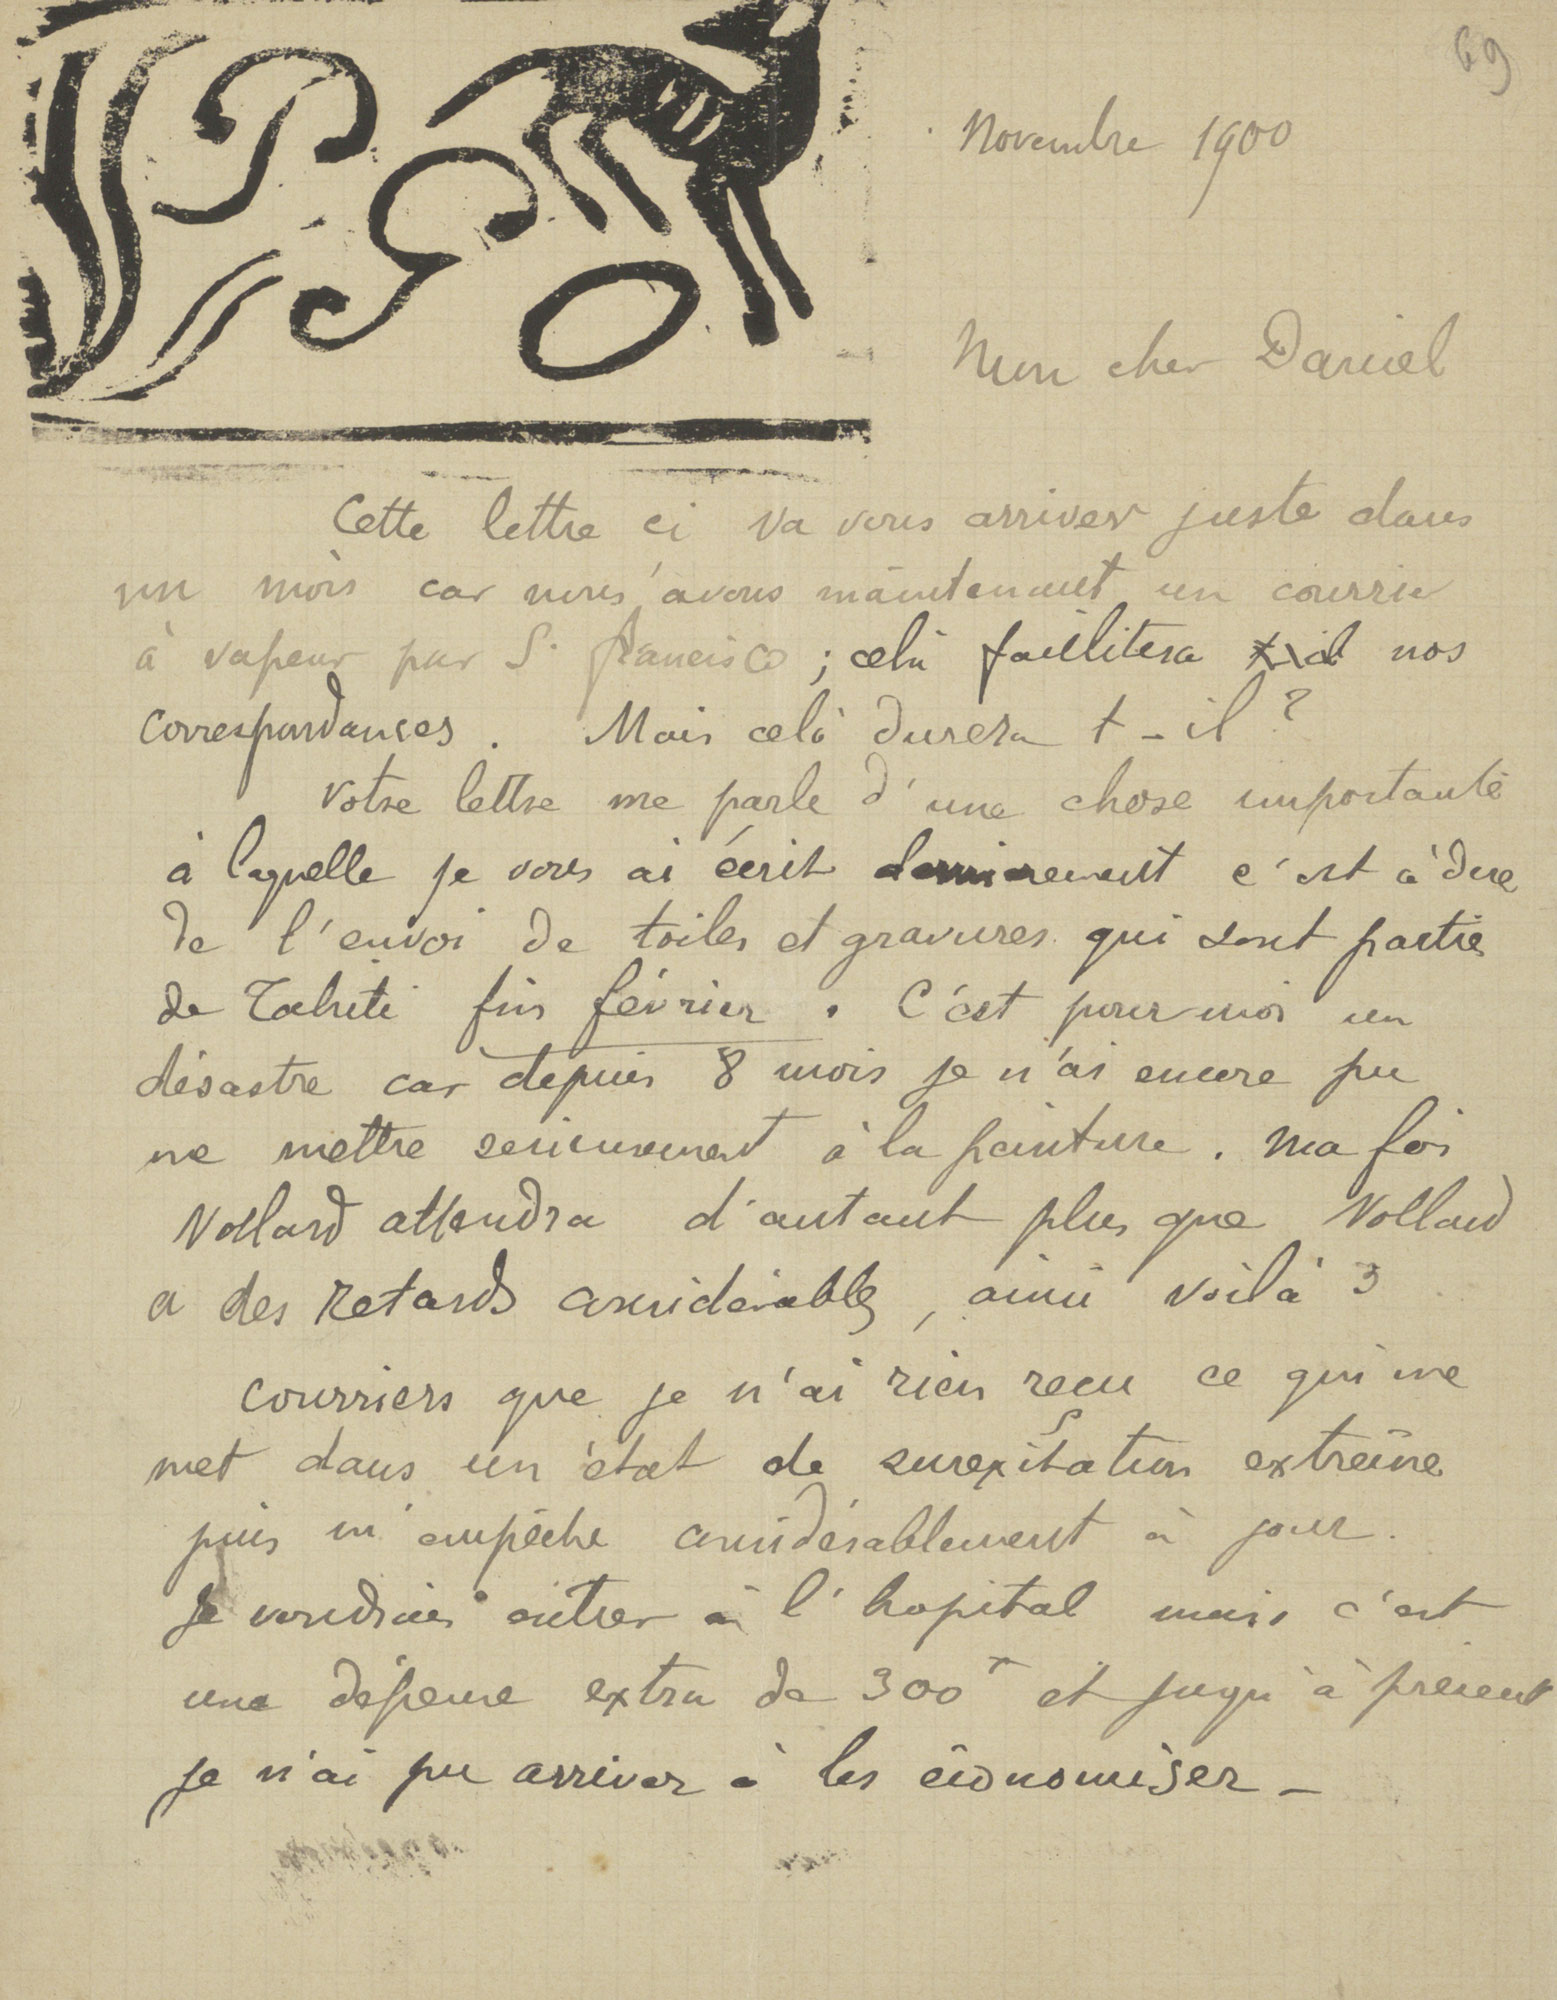 69
PGO
Novembre 1900
Mon cher Daniel
Cette lettre ci va vous arriver juste dans
un mois car nous avons maintenant un courrier
à vapeur par S. francisco ; celà facilitera nos
correspondances. Mais celà durera t-il ?
Votre lettre me parle d'une chose importante
à laquelle je vous ai écrit dernièrement c'est à dire
de l'envoi de toiles et gravures qui sont partis
de Tahiti fin février. C'est pour moi un
désastre car depuis 8 mois je n'ai encore pu
me mettre serieusement à la peinture. Ma foi
Vollard attendra d'autant plus que Vollard
a des retards considérables, ainsi voilà 3
courriers que je n'ai rien reçu ce qui me
met dans un état de surexitation extrême
puis m'empêche considérablement à jour.
Je voudrais entrer à l'hopital mais c'est
une dépense extra de 300f et juqu'à présent
je n'ai pu arriver à les économiser -